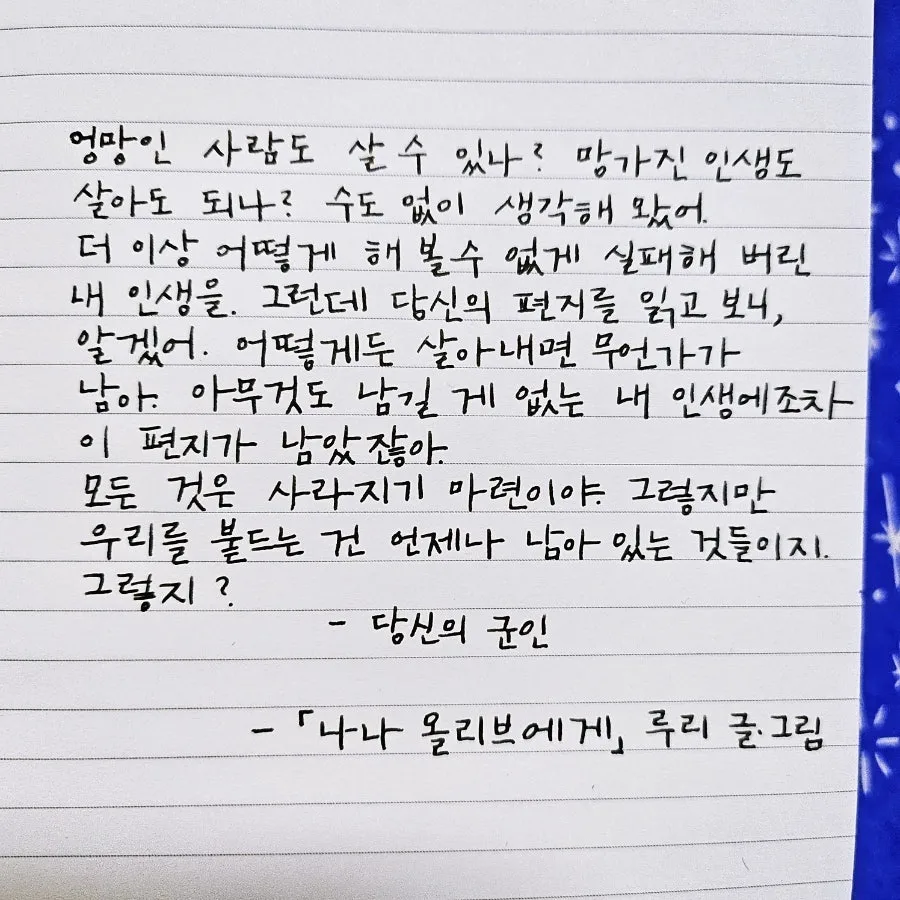 엉망인 사람도 살 수 있나? 망가진 인생도
살아도 되나? 수도 없이 생각해 왔어.
더 이상 어떻게 해 볼 수 없게 실패해 버린
내 인생을. 그런데 당신의 편지를 읽고 보니,
알겠어. 어떻게든 살아내면 무언가가
남아. 아무것도 남길 게 없는 내 인생에조차
이 편지가 남았잖아.
모든 것은 사라지기 마련이야. 그렇지만
우리를 붙드는 건 언제나 남아 있는 것들이지.
그렇지?
- 당신의 군인
- 「나나 올리브에게」 루리 글·그림